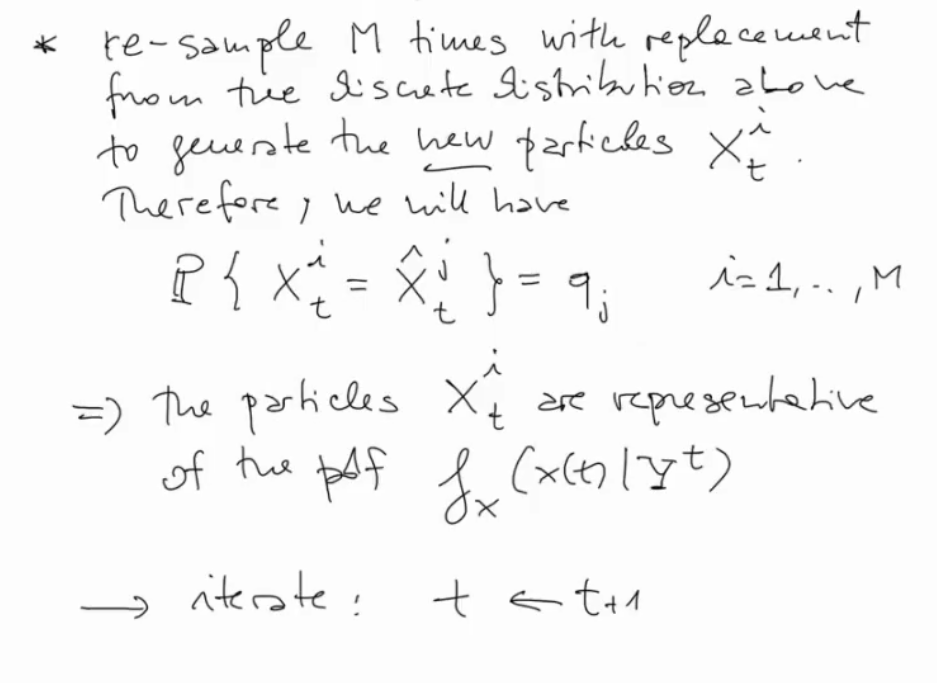 * re-sample M times with replacement
from the discrete distribution above
to generate the new particles X_t^i.
Therefore, we will have
ℙ{ X_t^i = X̂_t^j } = q_j    i=1,..,M
=> the particles X_t^i are representative
of the pdf f_x(x(t)|Y^t)
→ iterate: t ← t+1